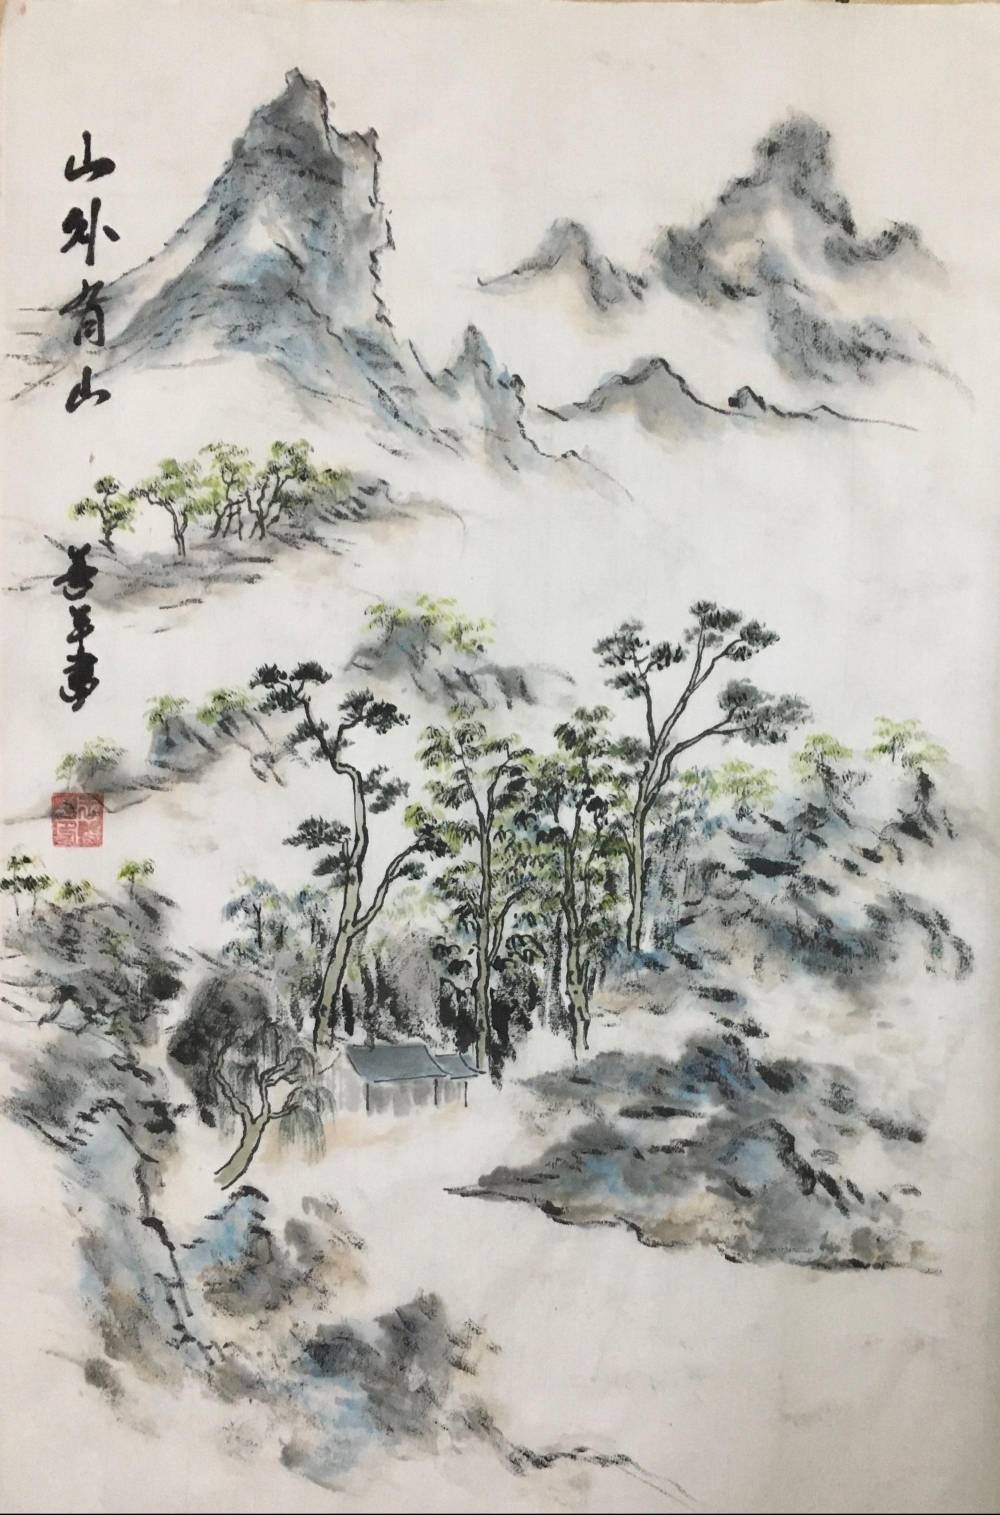 山外有山
善平画